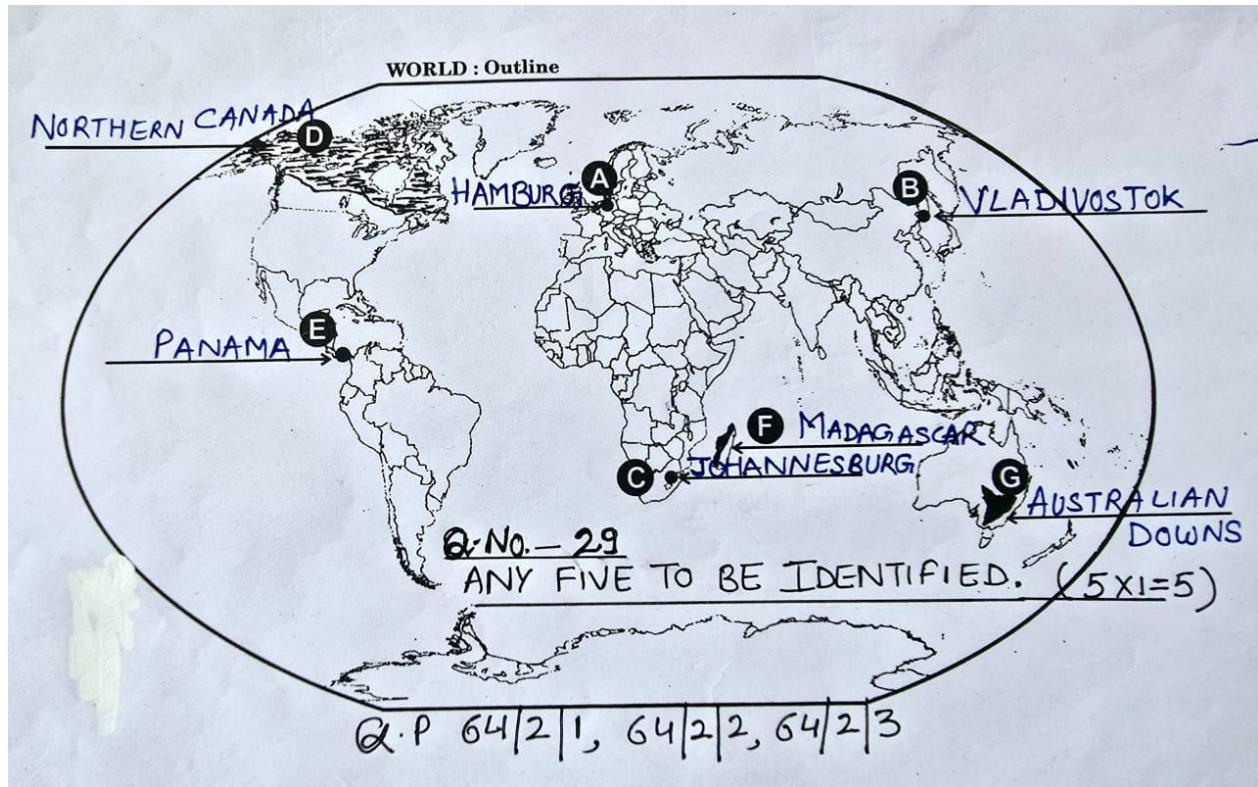 WORLD : Outline
NORTHERN CANADA
D
A
HAMBURG
B
VLADIVOSTOK
E
PANAMA
F MADAGASCAR
C
JOHANNESBURG
G
AUSTRALIAN
DOWNS
Q.No. – 29
ANY FIVE TO BE IDENTIFIED. (5X1=5)
Q.P 64/2/1, 64/2/2, 64/2/3